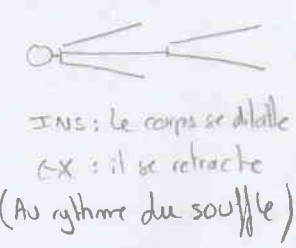 INS : Le corps se dilatte
EX : il se retracte
(Au rythme du souffle)